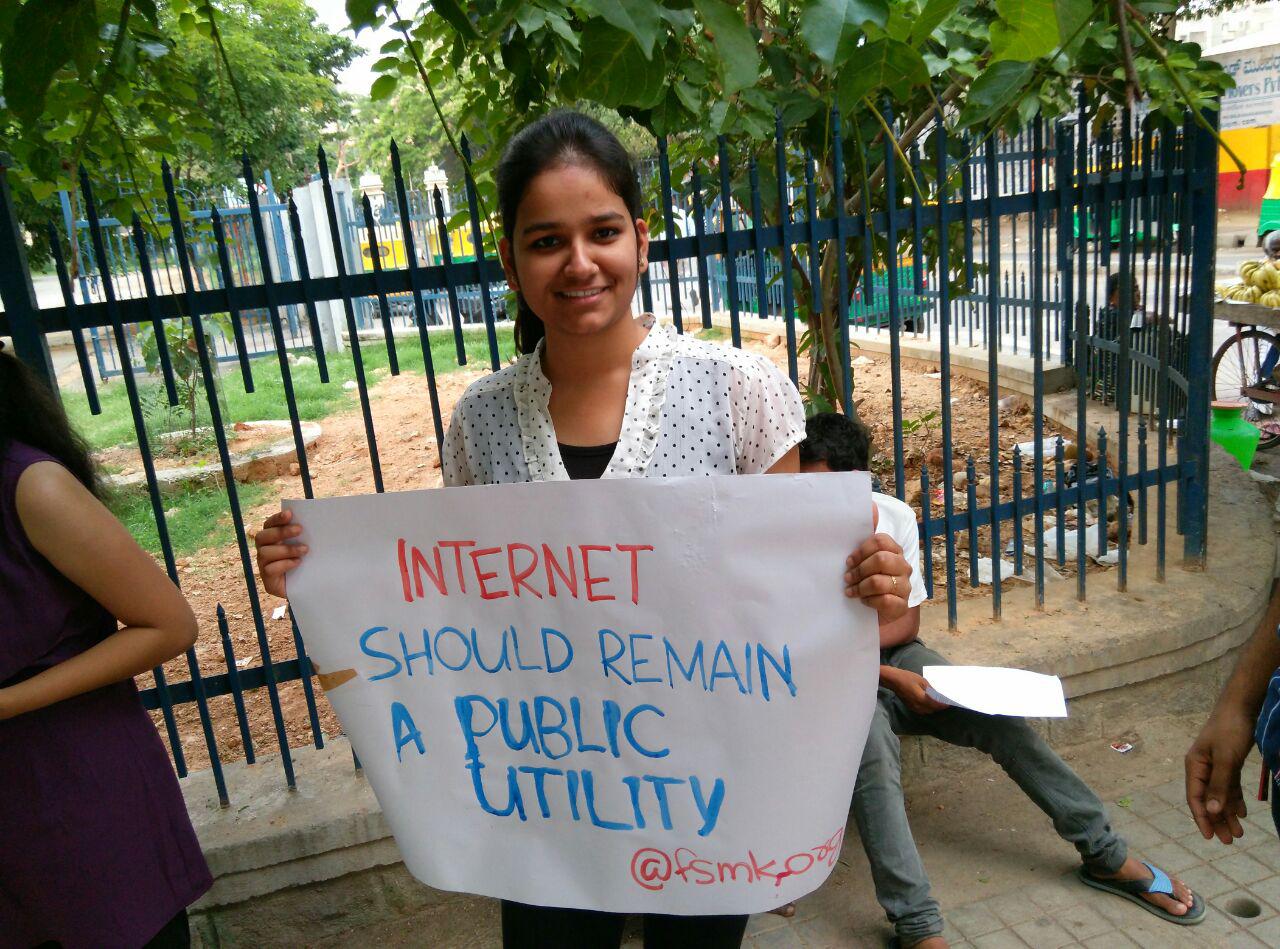 INTERNET
SHOULD REMAIN
A PUBLIC
UTILITY
@fsmk.org